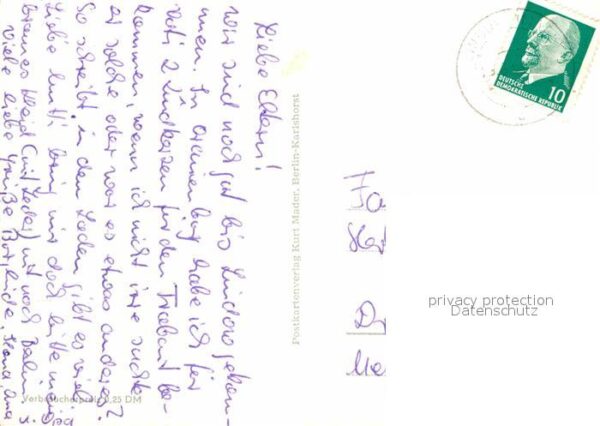 Liebe Eltern!
Wir sind noch gut bis Lindow gekom-
men. In Oranienburg habe ich für
Vati 2 Zündkerzen für den Trabant be-
kommen, wenn ich nicht irre suchte
er solche oder war es etwas anderes?
So schreibt, in den Läden gibt es viel.
Liebe Mutti bring mir doch bitte mein
braunes Kleid (mit Leder) mit nach Berlin.
Viele liebe Grüße
Postkartenverlag Kurt Mader, Berlin-Karlshorst
Verbraucherpreis 0,25 DM
DEUTSCHE
DEMOKRATISCHE REPUBLIK
10
Fa
Dr
privacy protection
Datenschutz